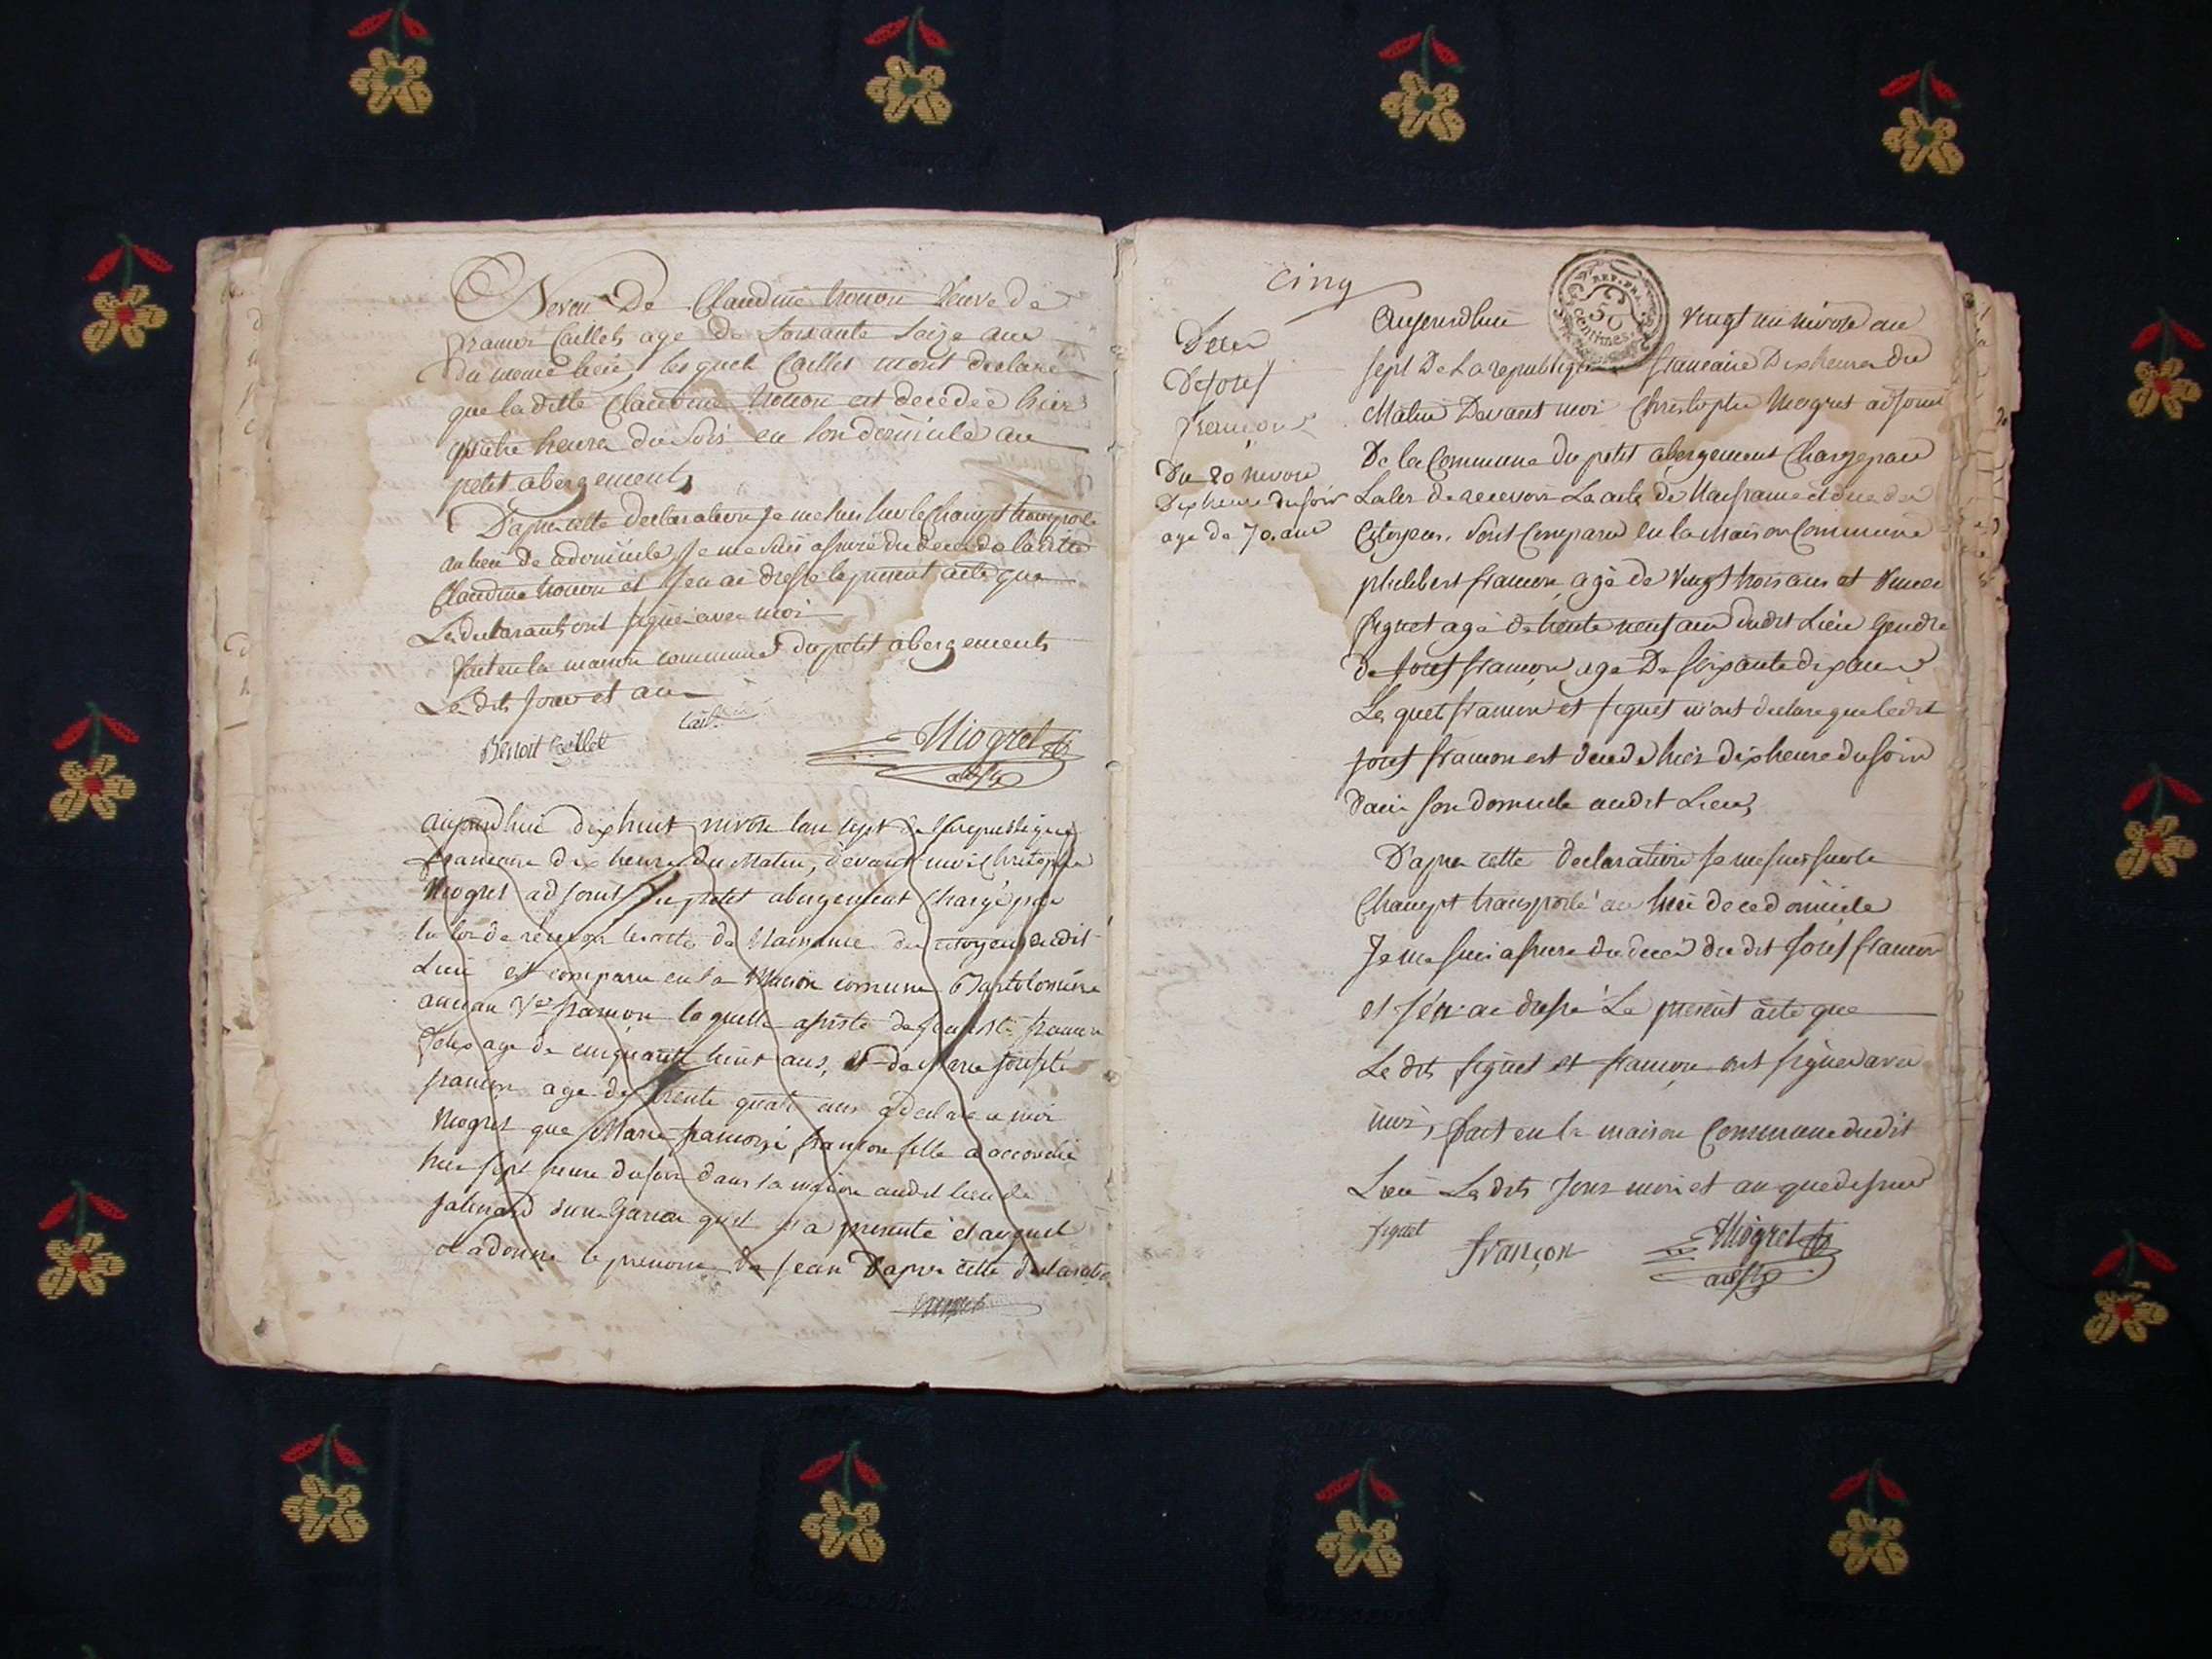 Neveu De Claudine veuve de
francois Caillet age de Soixante Saize ans
du meme lieu, lesquels Caillet mont declaré
que la ditte Claudine est decedée hier
quatre heures du Soir en Son domicile au
petit abergement,
D'apres cette declaration Je me suis sur le Champt transporté
au lieu de ce domicile, Je me suis assuré du deces de la ditte
Claudine et J'en ai dressé le present acte que
Les declarants ont signé avec moi
fait en la maison commune du petit abergement
Le dits Jour et an
Benoit Caillet Miogret
adjt
aujourdhui dix huit nivose lan sept de la republique
francaise dix heures du Matin, devant moi Christophe
Miogret adjoint du petit abergement Chargé par
la loi de recevoir les actes de Naissance des citoyens dudit
Lieu est comparu en la Maison comune Bartolomine
ancian Vve françon laquelle assisté de françon
age de cinquante huit ans, et de Marie Josephte
françon age de trente quatre ans a declare a moi
Miogret que Marie francoise françon fille a accouché
hier sept heure du soir dans sa maison audit lieu de
d'un Garcon quel m'a presenté et auquel
el a donné le prenom de Jean D'apres cette declaration
cinq
REP. FRA.
50
centimes
Deces
De Josef
françon
Du 20 nivose
Dix heures du soir
age de 70 ans
Aujourdhui vingt un nivose an
sept De La republique francaise Dix heures du
Matin Devant moi Christophe Miogret adjoint
De la Commune du petit abergement Charge par
La loi de recevoir Les acte de Naissance et deces des
Citoyens. Sont Comparu en la Maison Commune
philebert françon, agé de Vingt trois ans et
figuet agé de trente neuf ans dudit Lieu Gendre
de Josef françon, age De soixante dix ans
Les quels françon et figuet m'ont declare que ledit
Josef françon est decede hier dix heure du soir
dans son domicile audit Lieu,
D'apres cette declaration Je me suis sur le
Champt transporté au lieu de ce domicile
Je me suis assure du deces du dit Josef françon
et J'en ai dressé Le present acte que
Le dits figuet et françon ont signer avec
moi, fait en la maison Commune dudit
Lieu Le dits Jour mois et an que dessus
figuet françon Miogret
adjt